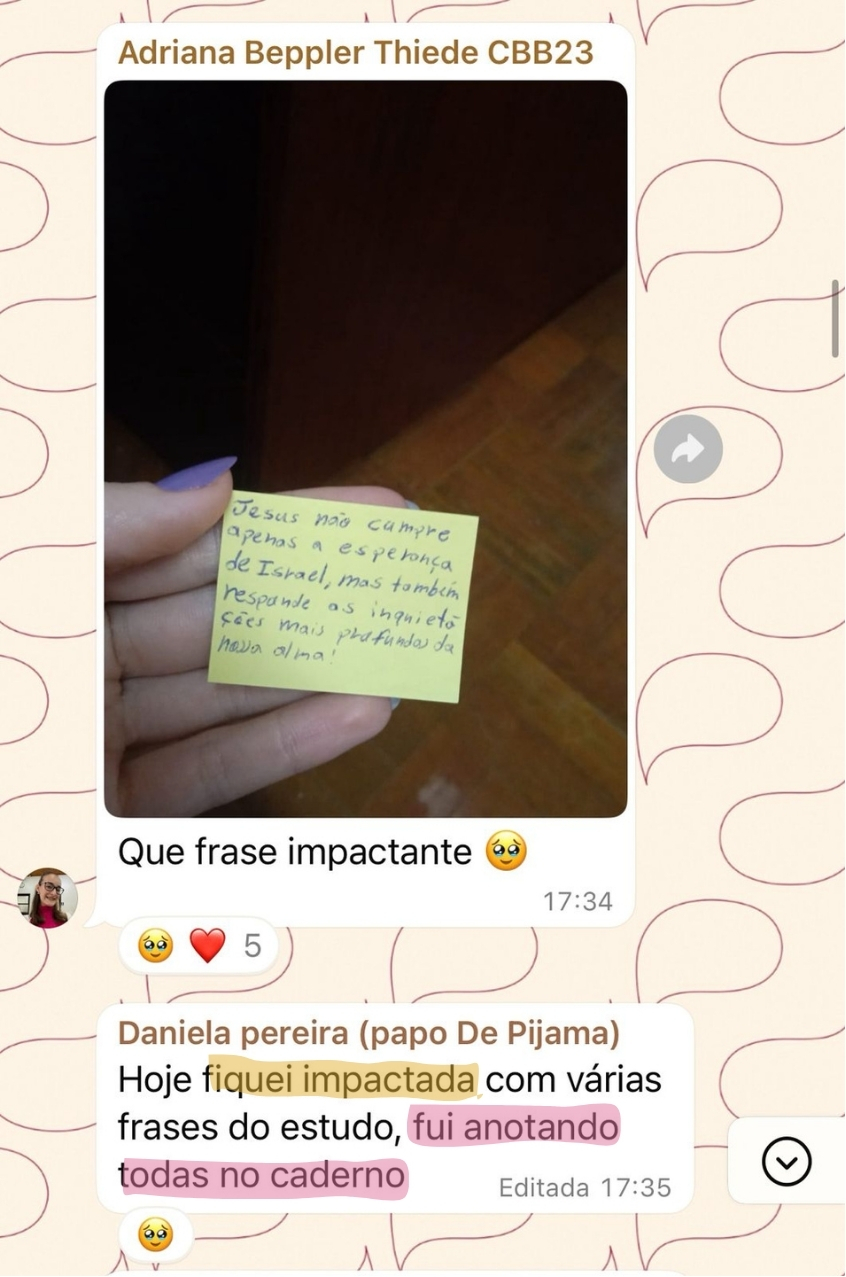 Adriana Beppler Thiede CBB23
Jesus não cumpre
apenas a esperança
de Israel, mas também
responde as inquietá
ções mais profundas da
nossa alma!
Que frase impactante 🥹
17:34
🥹 ❤️ 5
Daniela pereira (papo De Pijama)
Hoje fiquei impactada com várias
frases do estudo, fui anotando
todas no caderno
Editada 17:35
🥹